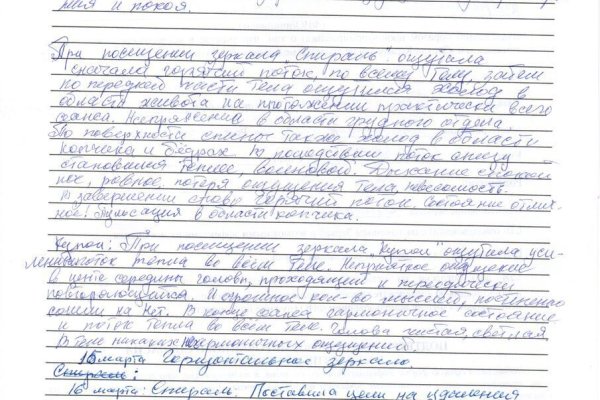 мия и покоя.
При посещении зеркала "Спираль" ощутила
сначала горячий поток, по всему телу, затем
по передней части тела ощущался холод в
области живота на протяжении практически всего
сеанса. Напряжение в области грудного отдела.
По поверхности спины также холод в области
копчика и бёдрах. В последствии поток снизу
становился теплее, волновой. Дыхание спокой
ное, ровное, потеря ощущения тела, невесомость.
В завершении снова горячий поток. Состояние отлич-
ное. Пульсация в области копчика.
Купол: При посещении зеркала "Купол" ощутила уси-
ление поток тепла во всём теле. Неприятное ощущение
в центе середины головы, проходящий и переодически
повторяющийся. И огромное кол-во мыслей, постепенно
сошли на нет. В конце сеанса гармоничное состояние
и поток тепла во всём теле. Голова чистая, светлая
В теле никаких не гармоничных ощущений.
15 марта Горизонтальное зеркало.
Спираль:
16 марта: Спираль. Поставила цели на удаления